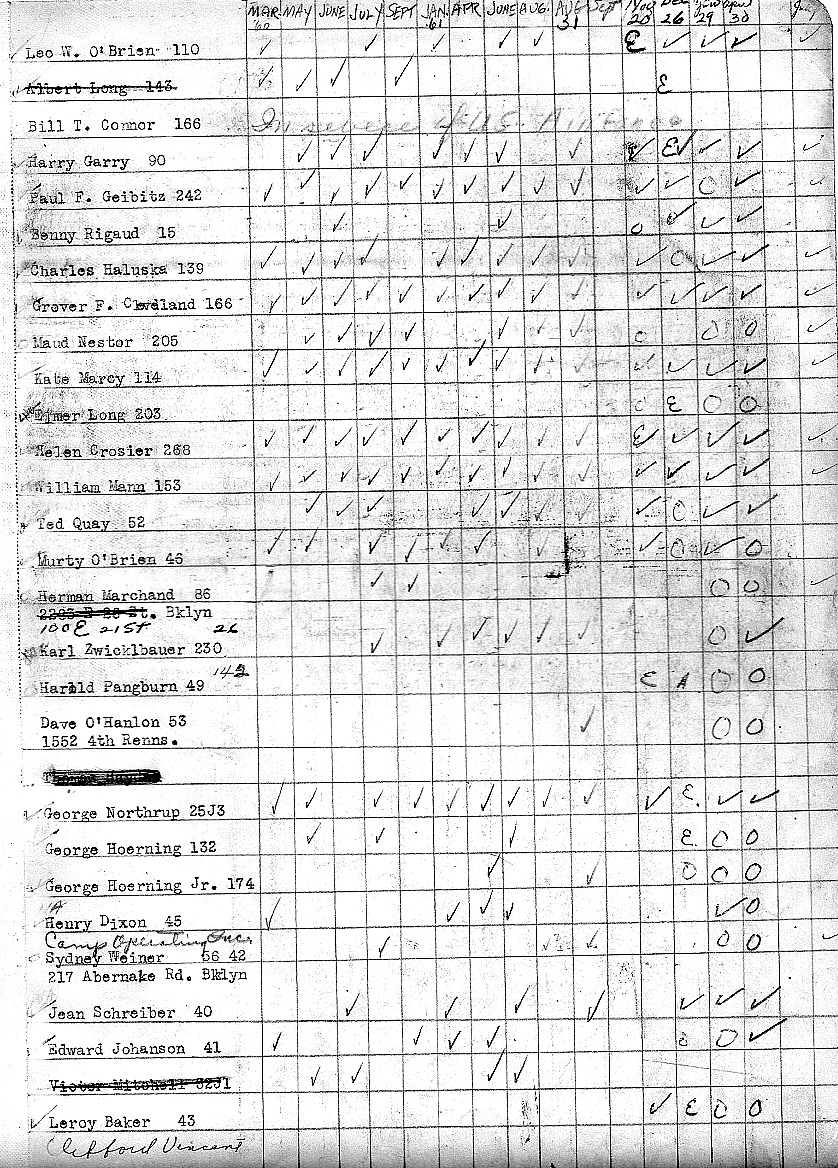 MAR MAY JUNE JULY SEPT JAN APR JUNE AUG. AUG Sept Nov Dec April July
'60 '61 31 20 26 29 30
Leo W. O'Brien 110 ✓ ✓ ✓ ✓ ✓ E ✓ ✓ ✓ ✓
Albert Long 143 ✓ ✓ ✓ E
Bill T. Connor 166 In service of U.S. Air Force
Harry Garry 90 ✓ ✓ ✓ ✓ ✓ ✓ ✓ ✓ E✓ ✓ ✓ ✓
Paul F. Geibitz 242 ✓ ✓ ✓ ✓ ✓ ✓ ✓ ✓ ✓ ✓ ✓ ✓ O ✓ ✓
Benny Rigaud 15 ✓ ✓ O ✓ ✓ ✓
Charles Haluska 139 ✓ ✓ ✓ ✓ ✓ ✓ ✓ ✓ ✓ ✓ O ✓ ✓ ✓
Grover F. Cleveland 166 ✓ ✓ ✓ ✓ ✓ ✓ ✓ ✓ ✓ ✓ ✓ ✓ ✓ ✓ ✓
Maud Nestor 205 ✓ ✓ ✓ ✓ ✓ ✓ ✓ O O O ✓
Kate Marcy 114 ✓ ✓ ✓ ✓ ✓ ✓ ✓ ✓ ✓ ✓ ✓ ✓ ✓ ✓ ✓
Elmer Long 203 O E O O
Helen Crosier 268 ✓ ✓ ✓ ✓ ✓ ✓ ✓ ✓ ✓ ✓ E ✓ ✓ ✓ ✓
William Mann 153 ✓ ✓ ✓ ✓ ✓ ✓ ✓ ✓ ✓ ✓ ✓ ✓ ✓ ✓ ✓
Ted Quay 52 ✓ ✓ ✓ ✓ ✓ ✓ ✓ ✓ O ✓ ✓
Murty O'Brien 46 ✓ ✓ ✓ ✓ ✓ ✓ ✓ ✓ O ✓ O
Herman Marchand 86 ✓ ✓ O O ✓
2263 E 28 St. Bklyn
100 E 21ST 26
Karl Zwicklbauer 230 ✓ ✓ ✓ ✓ ✓ ✓ O ✓
Harold Pangburn 49 142 E A O O
Dave O'Hanlon 53 ✓ O O
1552 4th Renns.
George Northrup 25J3 ✓ ✓ ✓ ✓ ✓ ✓ ✓ ✓ ✓ ✓ E ✓ ✓
George Hoerning 132 ✓ ✓ ✓ E O O
George Hoerning Jr. 174 ✓ ✓ O O O
Henry Dixon 45 ✓ ✓ ✓ ✓ ✓ O
Camp Operating Inc.
Sydney Weiner 56 42 ✓ ✓ ✓ O O ✓
217 Abernake Rd. Bklyn
Jean Schreiber 40 ✓ ✓ ✓ ✓ ✓ ✓ ✓
Edward Johanson 41 ✓ ✓ ✓ ✓ O O ✓
Victor Mitchell 32J1 ✓ ✓ ✓ ✓
Leroy Baker 43 ✓ E O O
Clifford Vincent